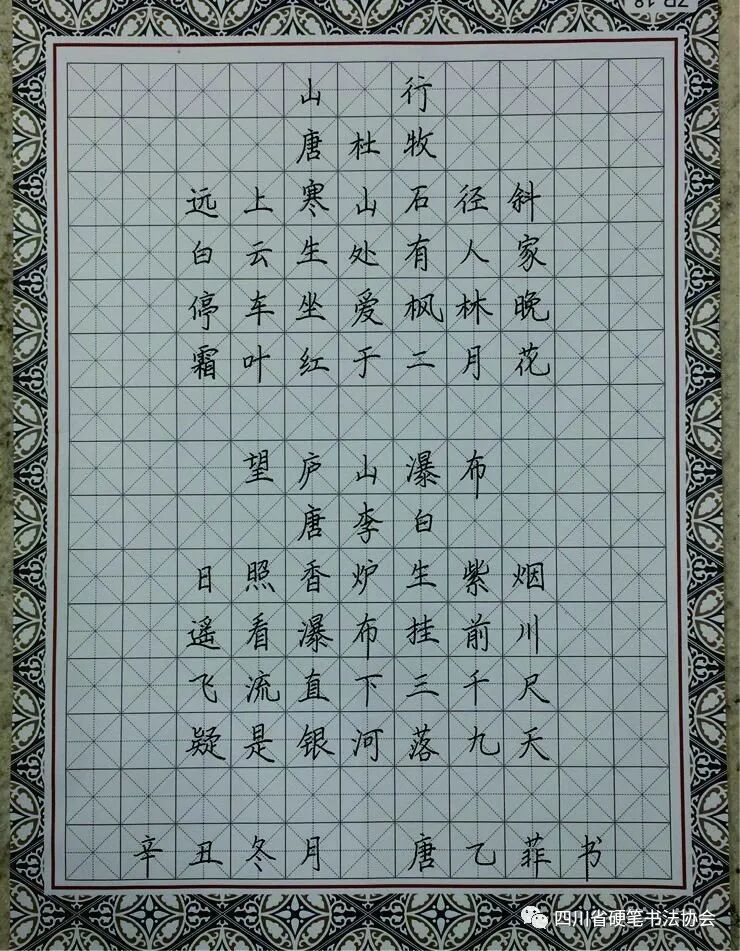 山行
唐 杜牧
远上寒山石径斜
白云生处有人家
停车坐爱枫林晚
霜叶红于二月花
望庐山瀑布
唐 李白
日照香炉生紫烟
遥看瀑布挂前川
飞流直下三千尺
疑是银河落九天
辛丑冬月 唐乙菲书
四川省硬笔书法协会